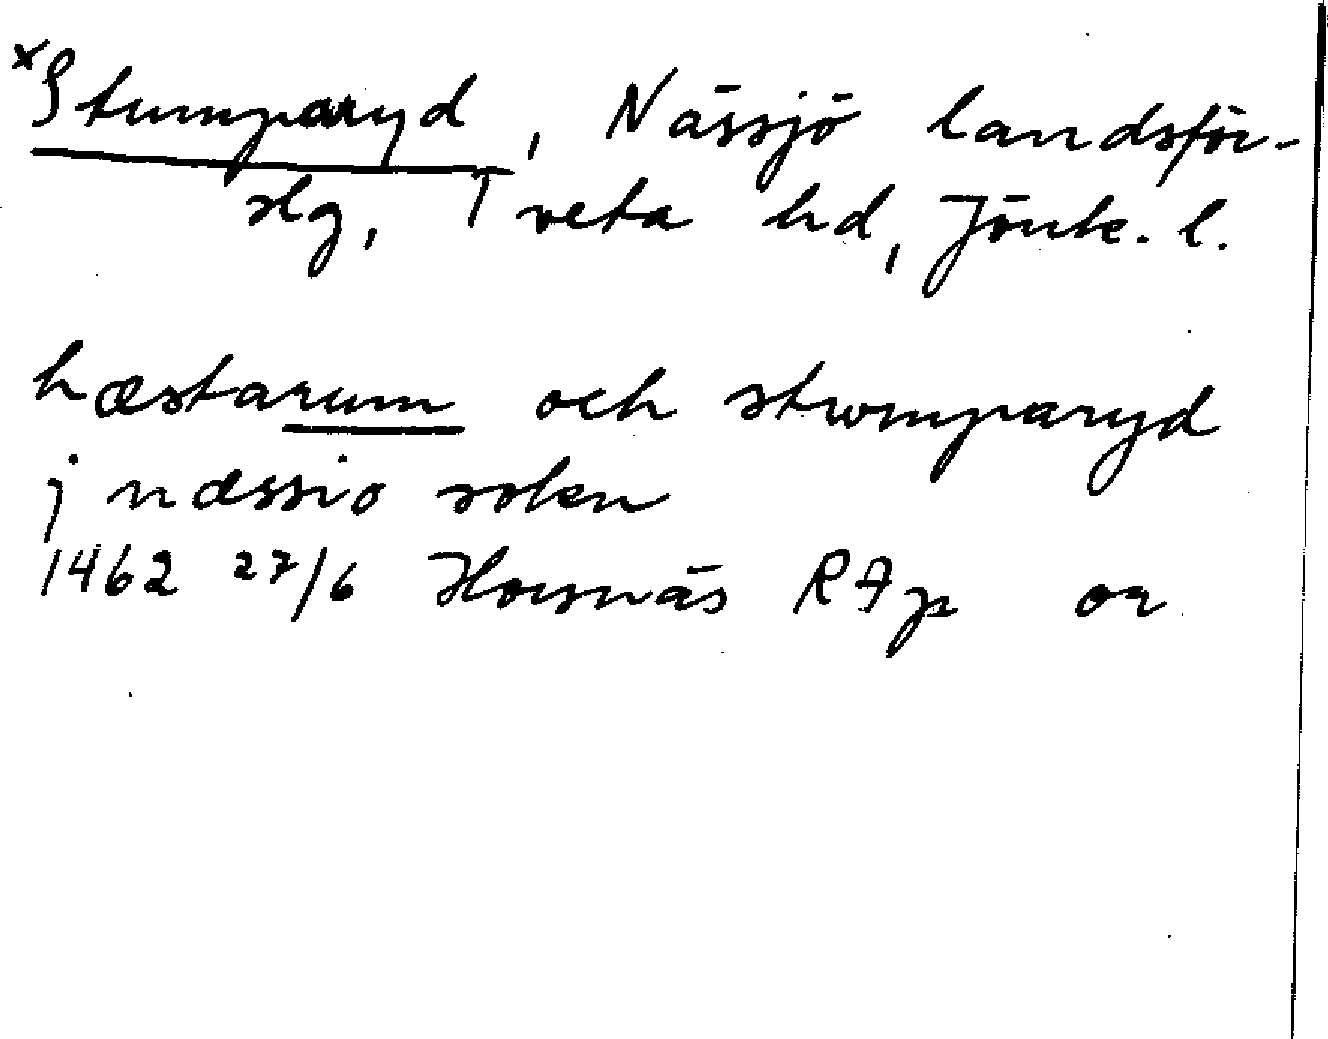 ×Stumparyd, Nässjö landsför-
slg, Tveta hd, Jönk. l.
hæstarum och stwmparyd
j næssio soken
1462 27/6 Hovsnäs RAp or